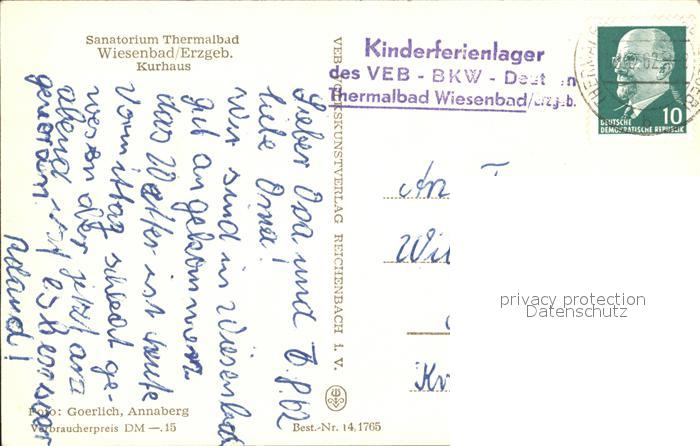 Sanatorium Thermalbad
Wiesenbad/Erzgeb.
Kurhaus
Kinderferienlager
des VEB - BKW - Deut n
Thermalbad Wiesenbad/Erzgeb.
10
DEUTSCHE
DEMOKRATISCHE REPUBLIK
VEB VOLKSKUNSTVERLAG REICHENBACH i. V.
Lieber Opa und 6.8.62
liebe Oma!
Wir sind in Wiesenbad
gut angekommen
das Wetter ist heute
Vormittag schlecht ge-
wesen aber jetzt am
abend ist es besser
geworden.
Roland!
An
Wi
Kr
Foto: Goerlich, Annaberg
Verbraucherpreis DM —.15
Best.-Nr. 14,1765
privacy protection
Datenschutz